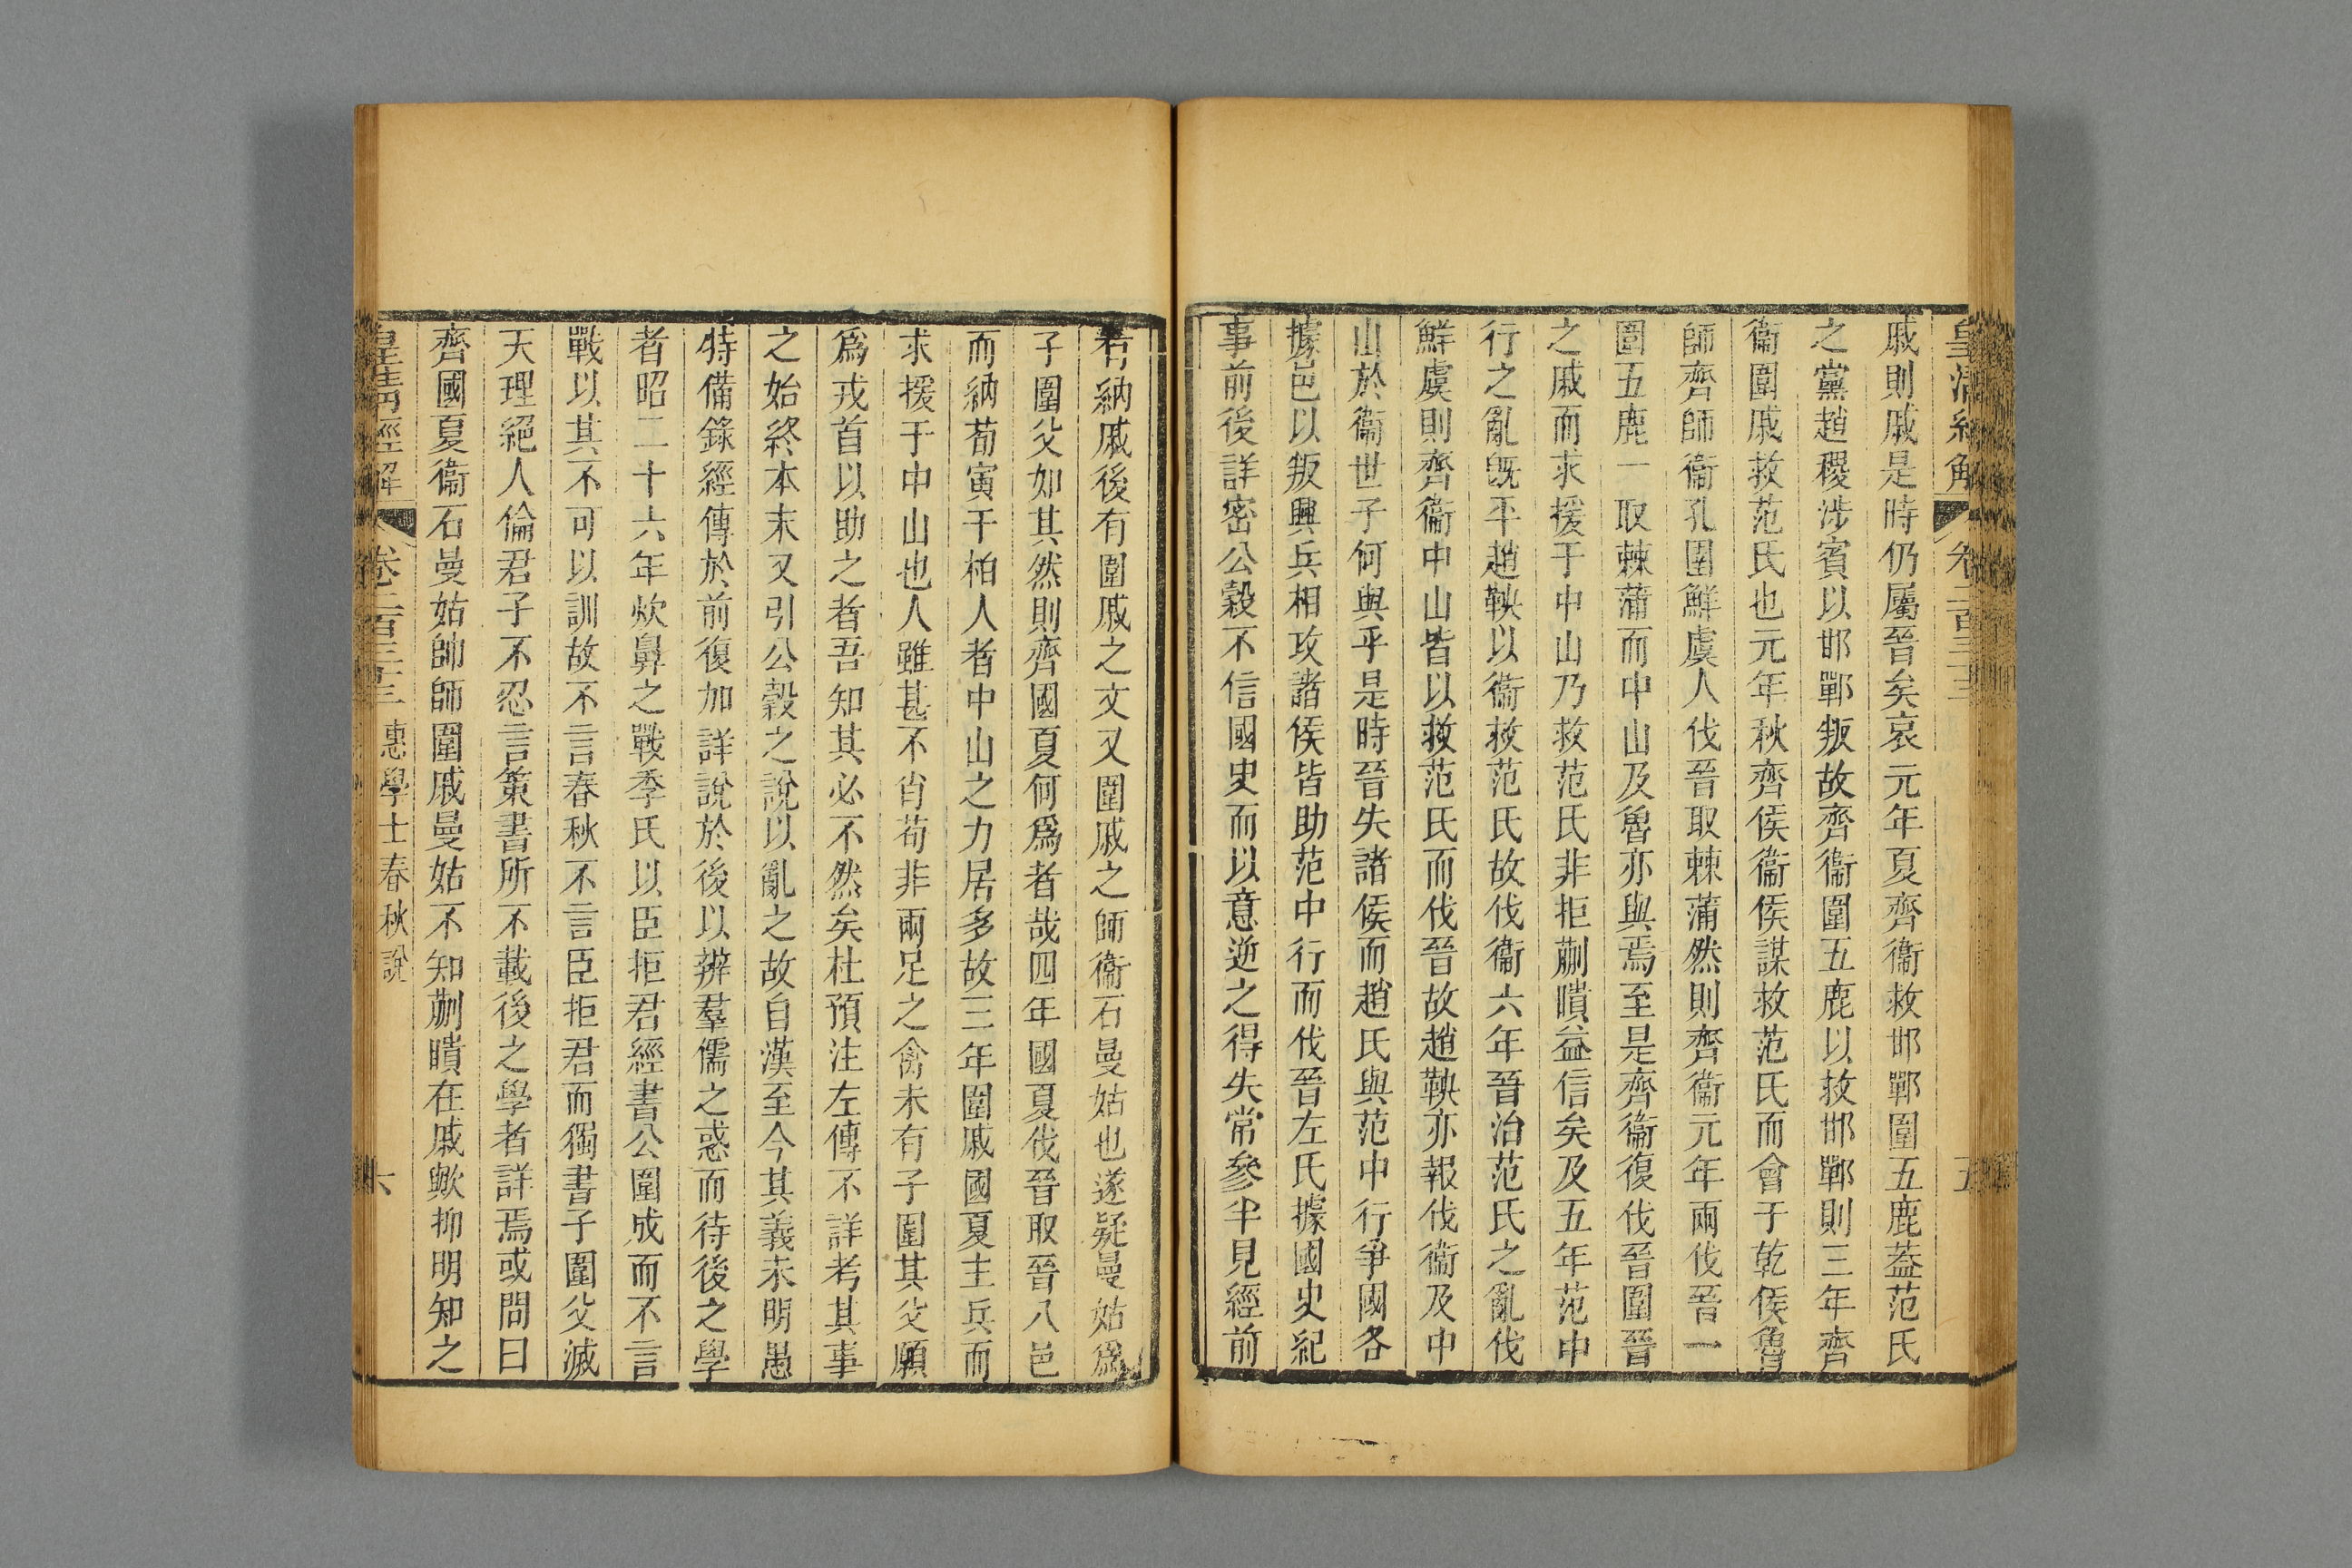 皇清經解 卷二百三十三 五
戚則戚是時仍屬晉矣哀元年夏齊衞救邯鄲圍五鹿葢范氏
之黨趙稷涉賓以邯鄲叛故齊衞圍五鹿以救邯鄲則三年齊
衞圍戚救范氏也元年秋齊侯衞侯謀救范氏而會于乾侯魯
師齊師衞孔圉鮮虞人伐晉取棘蒲然則齊衞元年兩伐晉一
圍五鹿一取棘蒲而中山及魯亦與焉至是齊衞復伐晉圍晉
之戚而求援于中山乃救范氏非拒蒯聵益信矣及五年范中
行之亂旣平趙鞅以衞救范氏故伐衞六年晉治范氏之亂伐
鮮虞則齊衞中山皆以救范氏而伐晉故趙鞅亦報伐衞及中
山於衞世子何與乎是時晉失諸侯而趙氏與范中行爭國各
據邑以叛興兵相攻諸侯皆助范中行而伐晉左氏據國史紀
事前後詳密公穀不信國史而以意逆之得失常參半見經前
有納戚後有圍戚之文又圍戚之師衞石曼姑也遂疑曼姑爲
子圍父如其然則齊國夏何爲者哉四年國夏伐晉取晉八邑
而納荀寅于柏人者中山之力居多故三年圍戚國夏主兵而
求援于中山也人雖甚不肖苟非兩足之禽未有子圍其父願
爲戎首以助之者吾知其必不然矣杜預注左傳不詳考其事
之始終本末又引公穀之說以亂之故自漢至今其義未明愚
特備錄經傳於前復加詳說於後以辨羣儒之惑而待後之學
者昭二十六年炊鼻之戰季氏以臣拒君經書公圍成而不言
戰以其不可以訓故不言春秋不言臣拒君而獨書子圍父滅
天理絕人倫君子不忍言策書所不載後之學者詳焉或問曰
齊國夏衞石曼姑帥師圍戚曼姑不知蒯聵在戚歟抑明知之
皇清經解 卷二百三十三 惠學士春秋說 六